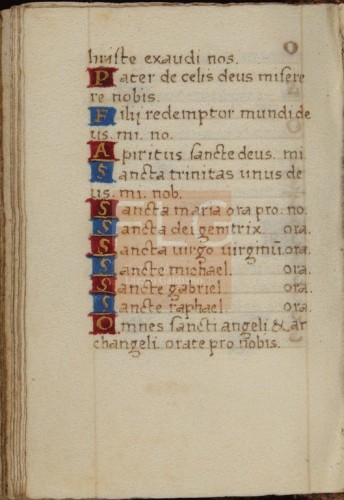 hriste exaudi nos.
Pater de celis deus misere
re nobis.
Filij redemptor mundi de
us. mi. no.
Apiritus sancte deus. mi
Sancta trinitas unus de
us. mi. nob.
Sancta maria ora pro. no.
Sancta dei genitrix. ora.
Sancta uirgo uirginū. ora.
Sancte michael. ora.
Sancte gabriel. ora.
Sancte raphael. ora.
Omnes sancti angeli & ar
changeli. orate pro nobis.